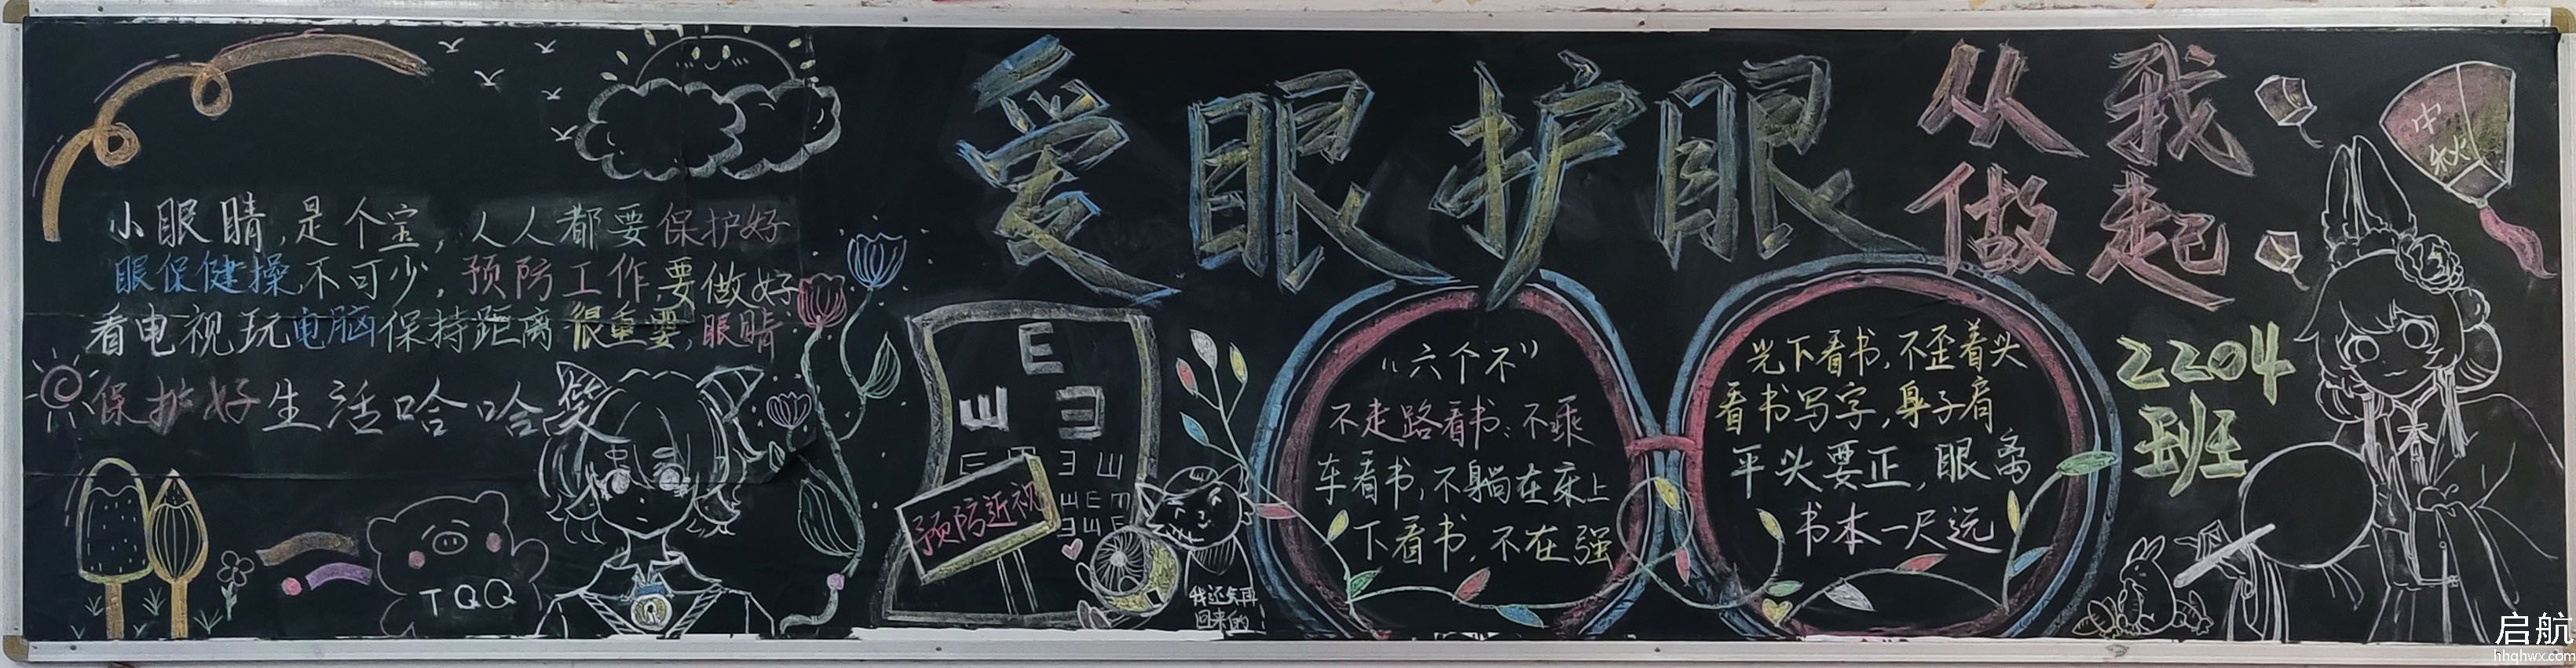 爱眼护眼
从我
做起
中秋
小眼睛,是个宝,人人都要保护好
眼保健操,不可少,预防工作,要做好
看电视玩电脑保持距离很重要,眼睛
保护好生活哈哈笑
TQQ
E
E
预防近视
我还会再
回来的
“六个不”
不走路看书;不乘
车看书,不躺在床上
下看书,不在强
光下看书,不歪着头
看书写字,身子肩
平头要正,眼离
书本一尺远
2204
班
启航
hhqhwx.com